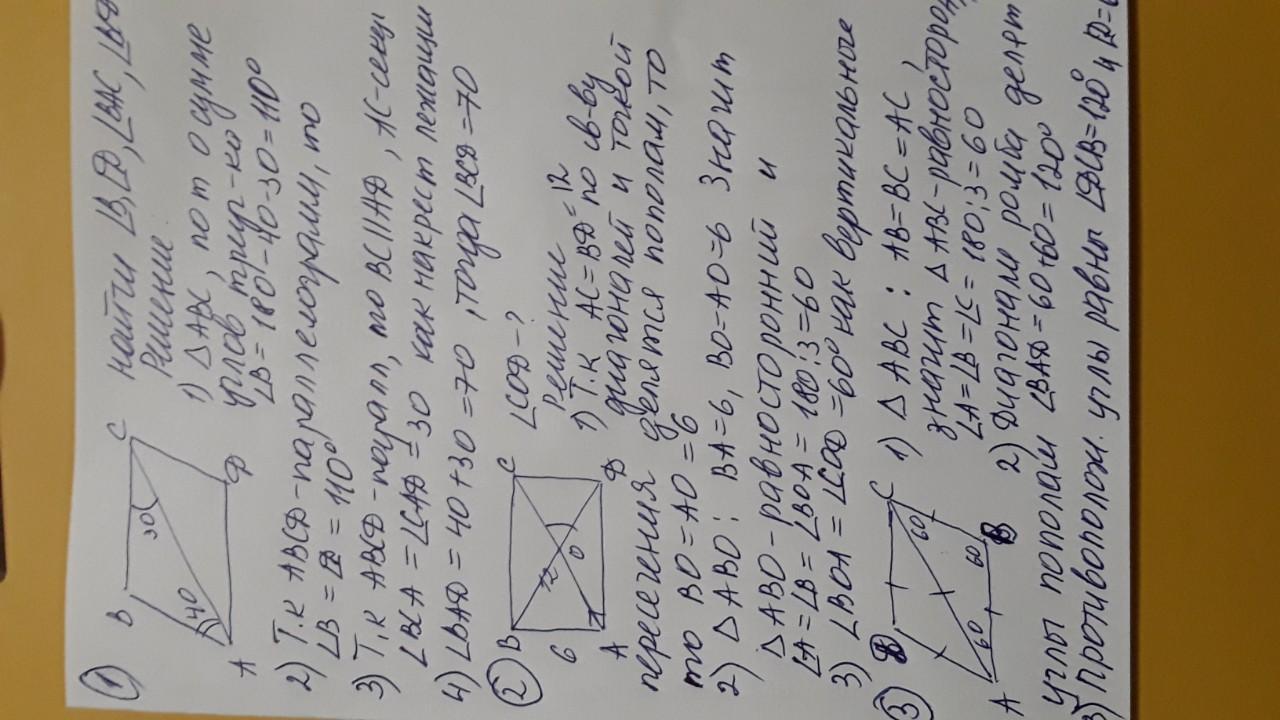 1
B
C
A
D
40
30
найти ∠B, ∠D, ∠BAC, ∠
Решение
1) △ABC, по т о сумме
углов треуг-ка
∠B = 180-40-30=110°
2) Т.к ABCD-параллелограмм, то
∠B = ∠D = 110°
3) Т.к ABCD-паралл, то BC||AD, AC-секущ
∠BCA = ∠CAD = 30 как накрест лежащи
4) ∠BAD = 40+30 = 70, тогда ∠BCD=70
2
B
C
A
D
6
12
O
∠COD-?
Решение
1) Т.к AC=BD=12
диагоналей и точкой по св-ву
пересечения делятся пополам, то
то BO=AO=6
2) △ABO: BA=6, BO=AO=6 Значит
△ABO-равносторонний и
∠A=∠B=∠BOA=180:3=60
3) ∠BOA=∠COD=60° как вертикальные
3
D
C
A
B
60
60
60
1) △ABC: AB=BC=AC,
значит △ABC-равносторон
∠A=∠B=∠C=180:3=60
2) Диагонали ромба делят
углы пополам ∠BAD=60+60=120°
3) Противополож. углы равны ∠DCB=120° и